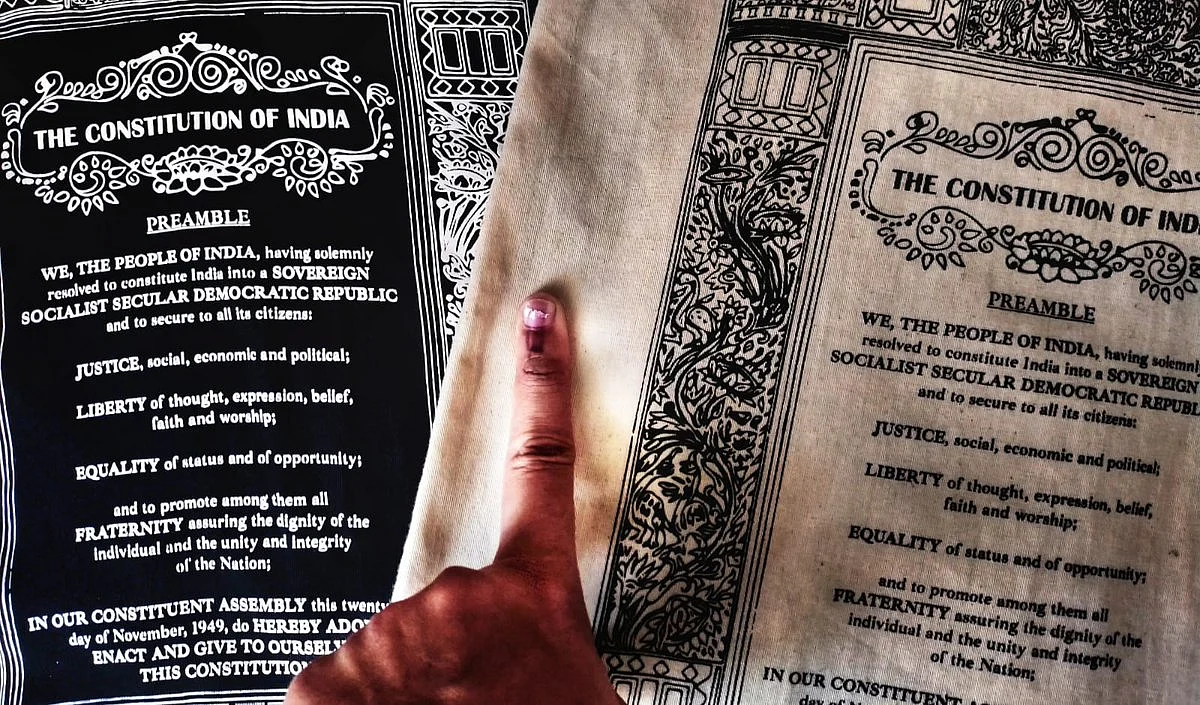 THE CONSTITUTION OF INDIA
PREAMBLE
WE, THE PEOPLE OF INDIA, having solemnly
resolved to constitute India into a SOVEREIGN
SOCIALIST SECULAR DEMOCRATIC REPUBLIC
and to secure to all its citizens:
JUSTICE, social, economic and political;
LIBERTY of thought, expression, belief,
faith and worship;
EQUALITY of status and of opportunity;
and to promote among them all
FRATERNITY assuring the dignity of the
individual and the unity and integrity
of the Nation;
IN OUR CONSTITUENT ASSEMBLY this twenty
day of November, 1949, do HEREBY ADO
ENACT AND GIVE TO OURSEL
THIS CONSTITUTION
THE CONSTITUTION OF IND
PREAMBLE
WE, THE PEOPLE OF INDIA, having solemnl
resolved to constitute India into a SOVEREIGN
SOCIALIST SECULAR DEMOCRATIC REPUBL
and to secure to all its citizens:
JUSTICE, social, economic and political;
LIBERTY of thought, expression, belief,
faith and worship;
EQUALITY of status and of opportunity;
and to promote among them all
FRATERNITY assuring the dignity of the
individual and the unity and integrity
of the Nation;
IN OUR CONSTITUENT
day of